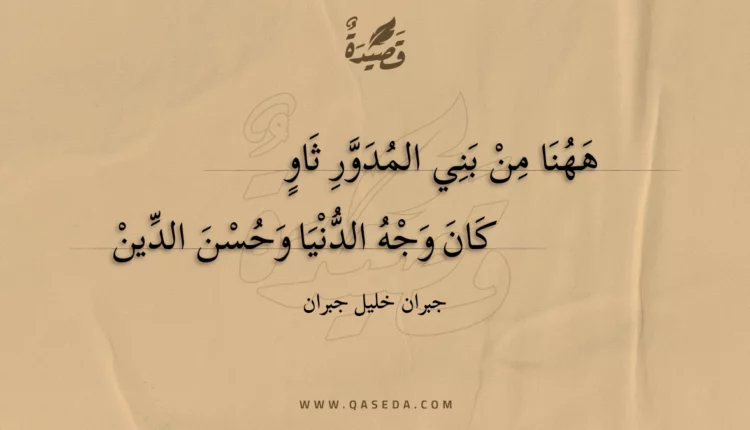 قَصِيدَةٌ
هَهُنَا مِنْ بَنِي المُدَوَّرِ ثَاوٍ
كَانَ وَجْهُ الدُّنْيَا وَحُسْنَ الدِّينْ
جبران خليل جبران
WWW.QASEDA.COM